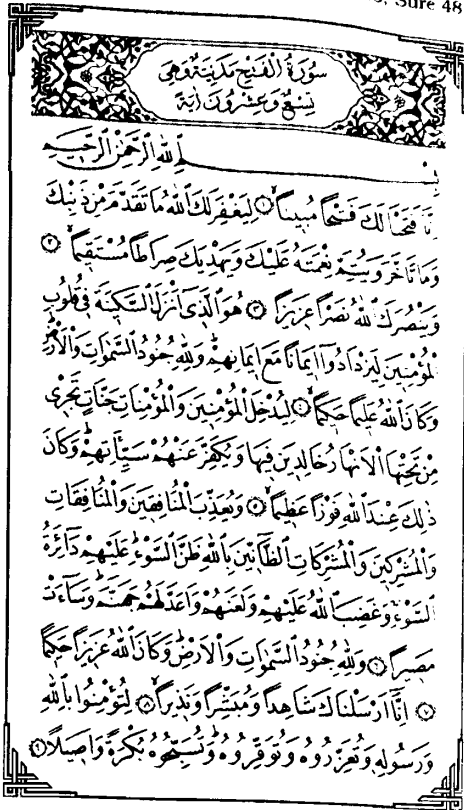 Sure 48
سُورَةُ الْفَتْحِ مَدَنِيَّةٌ وَهِيَ
تِسْعٌ وَعِشْرُونَ اٰيَةً
بِسْمِ اللّٰهِ الرَّحْمٰنِ الرَّحِيمِ
اِنَّا فَتَحْنَا لَكَ فَتْحًا مُبِينًا ۙ ١ لِيَغْفِرَ لَكَ اللّٰهُ مَا تَقَدَّمَ مِنْ ذَنْبِكَ
وَمَا تَاَخَّرَ وَيُتِمَّ نِعْمَتَهُ عَلَيْكَ وَيَهْدِيَكَ صِرَاطًا مُسْتَقِيمًا ۙ ٢
وَيَنْصُرَكَ اللّٰهُ نَصْرًا عَزِيزًا ٣ هُوَ الَّذِى اَنْزَلَ السَّكِينَةَ فِى قُلُوبِ
الْمُؤْمِنِينَ لِيَزْدَادُوا اِيمَانًا مَعَ اِيمَانِهِمْ وَلِلّٰهِ جُنُودُ السَّمٰوَاتِ وَالْاَرْضِ
وَكَانَ اللّٰهُ عَلِيمًا حَكِيمًا ۙ ٤ لِيُدْخِلَ الْمُؤْمِنِينَ وَالْمُؤْمِنَاتِ جَنَّاتٍ تَجْرِى
مِنْ تَحْتِهَا الْاَنْهَارُ خَالِدِينَ فِيهَا وَيُكَفِّرَ عَنْهُمْ سَيِّـَٔاتِهِمْ وَكَانَ
ذٰلِكَ عِنْدَ اللّٰهِ فَوْزًا عَظِيمًا ۙ ٥ وَيُعَذِّبَ الْمُنَافِقِينَ وَالْمُنَافِقَاتِ
وَالْمُشْرِكِينَ وَالْمُشْرِكَاتِ الظَّٓانِّينَ بِاللّٰهِ ظَنَّ السَّوْءِ عَلَيْهِمْ دَٓائِرَةُ
السَّوْءِ وَغَضِبَ اللّٰهُ عَلَيْهِمْ وَلَعَنَهُمْ وَاَعَدَّ لَهُمْ جَهَنَّمَ وَسَٓاءَتْ
مَصِيرًا ٦ وَلِلّٰهِ جُنُودُ السَّمٰوَاتِ وَالْاَرْضِ وَكَانَ اللّٰهُ عَزِيزًا حَكِيمًا
٧ اِنَّٓا اَرْسَلْنَاكَ شَاهِدًا وَمُبَشِّرًا وَنَذِيرًا ۙ ٨ لِتُؤْمِنُوا بِاللّٰهِ
وَرَسُولِهِ وَتُعَزِّرُوهُ وَتُوَقِّرُوهُ وَتُسَبِّحُوهُ بُكْرَةً وَاَصِيلًا ٩